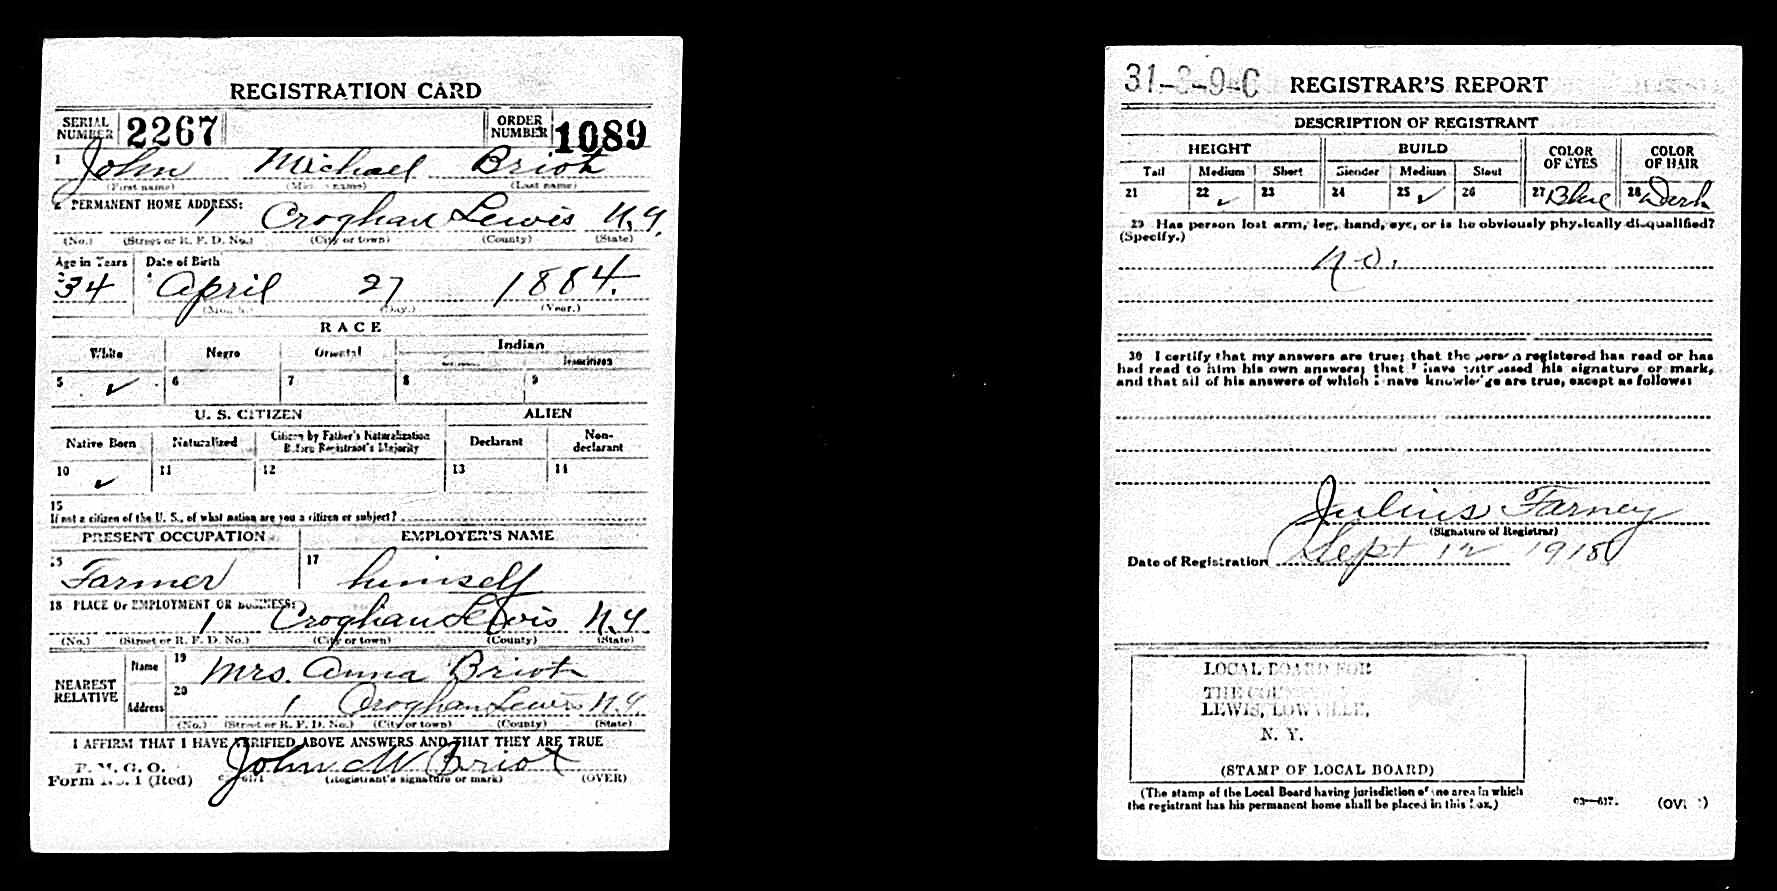 REGISTRATION CARD
SERIAL NUMBER 2267 ORDER NUMBER 1089
1 John Michael Briot
(First name) (Middle name) (Last name)
2 PERMANENT HOME ADDRESS:
1 Croghan Lewis N.Y.
(No.) (Street or R. F. D. No.) (City or town) (County) (State)
Age in Years Date of Birth
3 34 4 April 27 1884.
(Month.) (Day.) (Year.)
RACE
White Negro Oriental Indian
Noncitizen
5 ✓ 6 7 8 9
U. S. CITIZEN ALIEN
Native Born Naturalized Citizen by Father's Naturalization Before Registrant's Majority Declarant Non-declarant
10 ✓ 11 12 13 14
15
If not a citizen of the U. S., of what nation are you a citizen or subject?
PRESENT OCCUPATION EMPLOYER'S NAME
16 Farmer 17 himself
18 PLACE OF EMPLOYMENT OR BUSINESS:
1 Croghan Lewis N.Y
(No.) (Street or R. F. D. No.) (City or town) (County) (State)
NEAREST RELATIVE
Name 19 Mrs. Anna Briot
Address 20 1 Croghan Lewis N.Y.
(No.) (Street or R. F. D. No.) (City or town) (County) (State)
I AFFIRM THAT I HAVE VERIFIED ABOVE ANSWERS AND THAT THEY ARE TRUE
P. M. G. O.
Form No. 1 (Red) John M Briot
(Registrant's signature or mark) (OVER)
REGISTRAR'S REPORT
DESCRIPTION OF REGISTRANT
HEIGHT BUILD COLOR OF EYES COLOR OF HAIR
Tall Medium Short Slender Medium Stout
21 22 ✓ 23 24 25 ✓ 26 27 Blue 28 Dark
29 Has person lost arm, leg, hand, eye, or is he obviously physically disqualified?
(Specify.)
No.
30 I certify that my answers are true; that the person registered has read or has
had read to him his own answers; that I have witnessed his signature or mark,
and that all of his answers of which I have knowledge are true, except as follows:
Julius Farney
(Signature of Registrar)
Date of Registration Sept 12 1918
LOCAL BOARD FOR
THE COUNTY
LEWIS, LOWVILLE,
N. Y.
(STAMP OF LOCAL BOARD)
(The stamp of the Local Board having jurisdiction of the area in which
the registrant has his permanent home shall be placed in this box.)
(OVER)